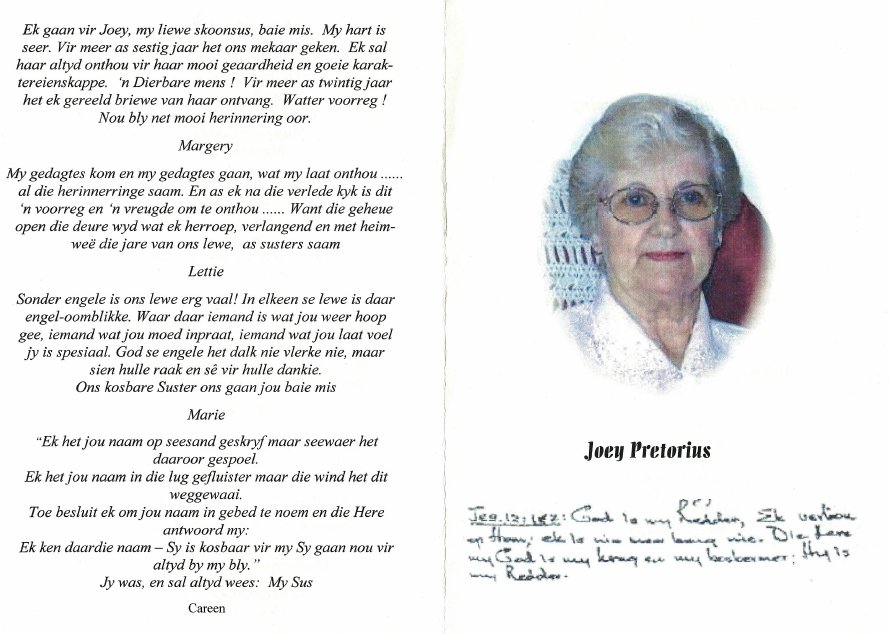 Ek gaan vir Joey, my liewe skoonsus, baie mis. My hart is
seer. Vir meer as sestig jaar het ons mekaar geken. Ek sal
haar altyd onthou vir haar mooi geaardheid en goeie karak-
tereienskappe. ‘n Dierbare mens ! Vir meer as twintig jaar
het ek gereeld briewe van haar ontvang. Watter voorreg !
Nou bly net mooi herinnering oor.
Margery
My gedagtes kom en my gedagtes gaan, wat my laat onthou ......
al die herinnerringe saam. En as ek na die verlede kyk is dit
‘n voorreg en ‘n vreugde om te onthou ...... Want die geheue
open die deure wyd wat ek herroep, verlangend en met heim-
weë die jare van ons lewe, as susters saam
Lettie
Sonder engele is ons lewe erg vaal! In elkeen se lewe is daar
engel-oomblikke. Waar daar iemand is wat jou weer hoop
gee, iemand wat jou moed inpraat, iemand wat jou laat voel
jy is spesiaal. God se engele het dalk nie vlerke nie, maar
sien hulle raak en sê vir hulle dankie.
Ons kosbare Suster ons gaan jou baie mis
Marie
“Ek het jou naam op seesand geskryf maar seewaer het
daaroor gespoel.
Ek het jou naam in die lug gefluister maar die wind het dit
weggewaai.
Toe besluit ek om jou naam in gebed te noem en die Here
antwoord my:
Ek ken daardie naam – Sy is kosbaar vir my Sy gaan nou vir
altyd by my bly.”
Jy was, en sal altyd wees: My Sus
Careen
Joey Pretorius
God is my Redder, Ek vertrou
op Hom, ek is nie meer bang nie. Die Here
my God is my krag en my beskermer; Hy is
my Redder.